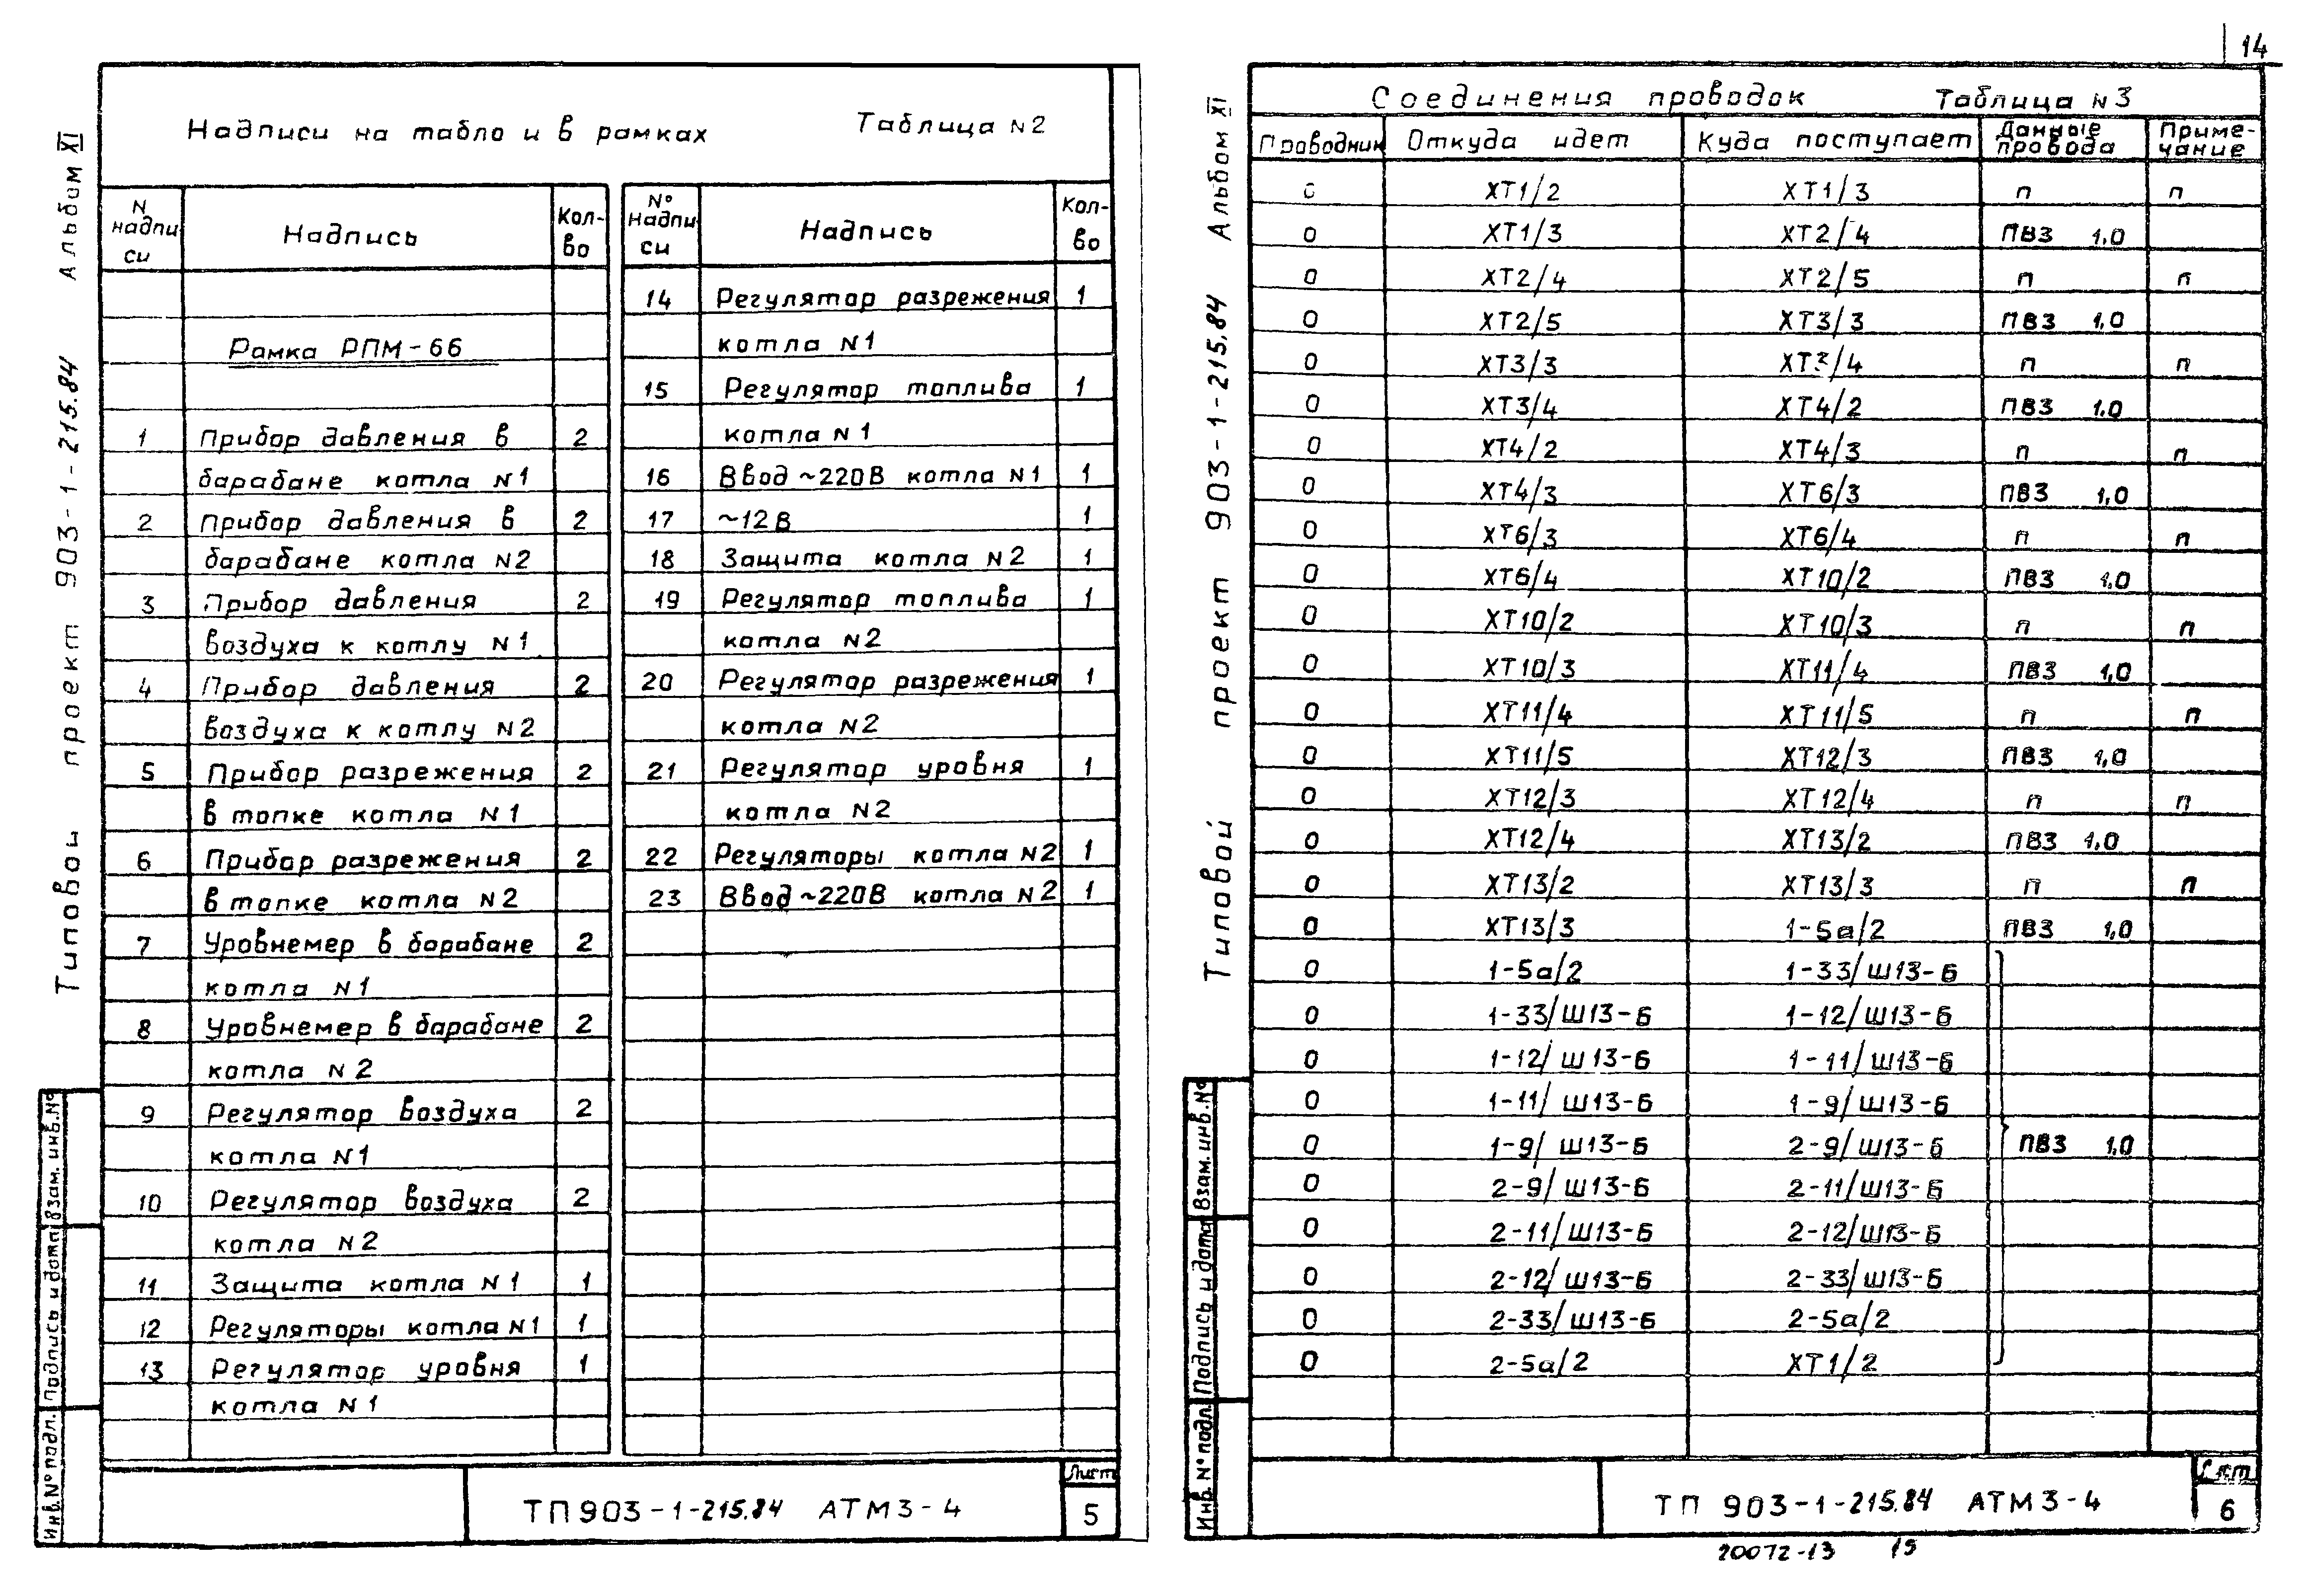 14
Альбом XI
Типовой проект 903-1-215.84
Взам. инв. №
Подпись и дата
Инв. № подл.
Надписи на табло и в рамках Таблица N2
N надписи Надпись Кол-во
Рамка РПМ-66
1 Прибор давления в 2
барабане котла N1
2 Прибор давления в 2
барабане котла N2
3 Прибор давления 2
воздуха к котлу N1
4 Прибор давления 2
воздуха к котлу N2
5 Прибор разрежения 2
в топке котла N1
6 Прибор разрежения 2
в топке котла N2
7 Уровнемер в барабане 2
котла N1
8 Уровнемер в барабане 2
котла N2
9 Регулятор воздуха 2
котла N1
10 Регулятор воздуха 2
котла N2
11 Защита котла N1 1
12 Регуляторы котла N1 1
13 Регулятор уровня 1
котла N1
N° надписи Надпись Кол-во
14 Регулятор разрежения 1
котла N1
15 Регулятор топлива 1
котла N1
16 Ввод ~220В котла N1 1
17 ~12В 1
18 Защита котла N2 1
19 Регулятор топлива 1
котла N2
20 Регулятор разрежения 1
котла N2
21 Регулятор уровня 1
котла N2
22 Регуляторы котла N2 1
23 Ввод ~220В котла N2 1
ТП 903-1-215.84 АТМ3-4
Лист
5
Альбом XI
Типовой проект 903-1-215.84
Взам. инв. №
Подпись и дата
Инв. № подл.
Соединения проводок Таблица N3
Проводник Откуда идет Куда поступает Данные провода Приме-чание
0 ХТ1/2 ХТ1/3 п п
0 ХТ1/3 ХТ2/4 ПВ3 1,0
0 ХТ2/4 ХТ2/5 п п
0 ХТ2/5 ХТ3/3 ПВ3 1,0
0 ХТ3/3 ХТ3/4 п п
0 ХТ3/4 ХТ4/2 ПВ3 1,0
0 ХТ4/2 ХТ4/3 п п
0 ХТ4/3 ХТ6/3 ПВ3 1,0
0 ХТ6/3 ХТ6/4 п п
0 ХТ6/4 ХТ10/2 ПВ3 1,0
0 ХТ10/2 ХТ10/3 п п
0 ХТ10/3 ХТ11/4 ПВ3 1,0
0 ХТ11/4 ХТ11/5 п п
0 ХТ11/5 ХТ12/3 ПВ3 1,0
0 ХТ12/3 ХТ12/4 п п
0 ХТ12/4 ХТ13/2 ПВ3 1,0
0 ХТ13/2 ХТ13/3 п п
0 ХТ13/3 1-5а/2 ПВ3 1,0
0 1-5а/2 1-33/Ш13-Б
0 1-33/Ш13-Б 1-12/Ш13-Б
0 1-12/Ш13-Б 1-11/Ш13-Б
0 1-11/Ш13-Б 1-9/Ш13-Б
0 1-9/Ш13-Б 2-9/Ш13-Б ПВ3 1,0
0 2-9/Ш13-Б 2-11/Ш13-Б
0 2-11/Ш13-Б 2-12/Ш13-Б
0 2-12/Ш13-Б 2-33/Ш13-Б
0 2-33/Ш13-Б 2-5а/2
0 2-5а/2 ХТ1/2
ТП 903-1-215.84 АТМ3-4
Лист
6
20072-13 15